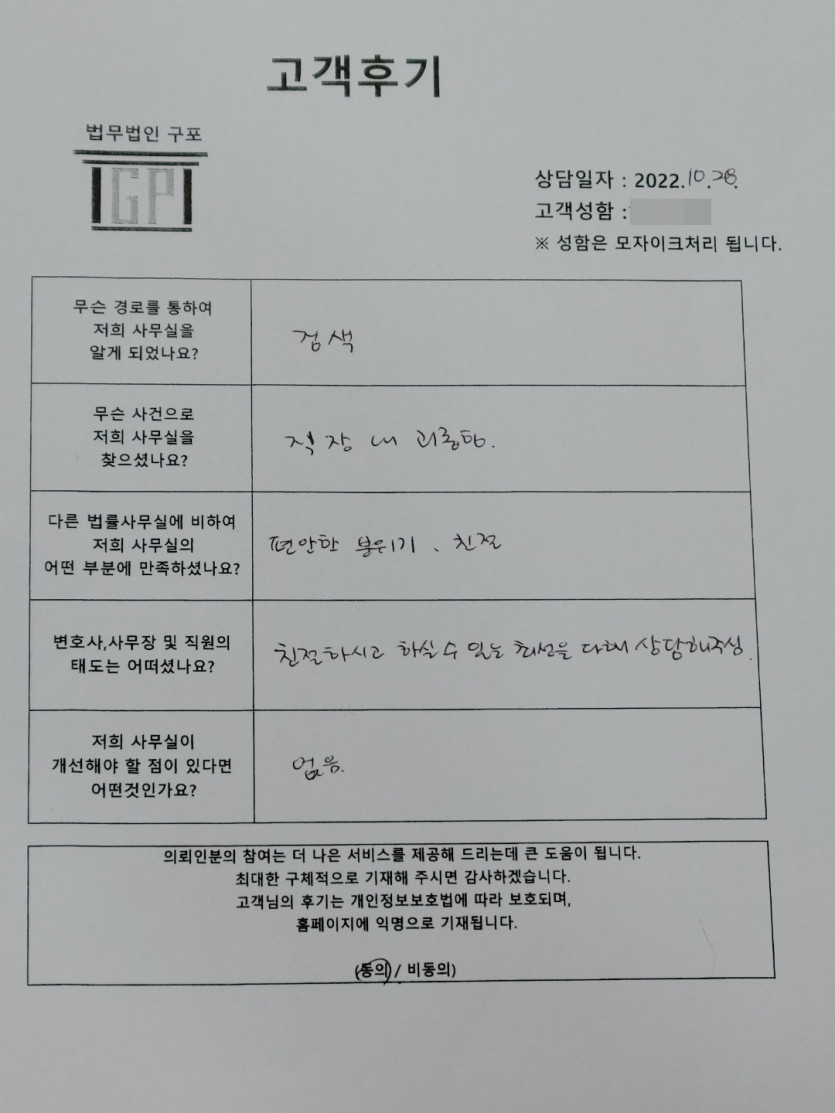 고객후기
법무법인 구포
GP
상담일자 : 2022.10.28.
고객성함 :
※ 성함은 모자이크처리 됩니다.
무슨 경로를 통하여
저희 사무실을
알게 되었나요?
검색
무슨 사건으로
저희 사무실을
찾으셨나요?
직장 내 괴롭힘.
다른 법률사무실에 비하여
저희 사무실의
어떤 부분에 만족하셨나요?
편안한 분위기、친절
변호사,사무장 및 직원의
태도는 어떠셨나요?
친절하시고 하실 수 있는 최선을 다해 상담해주심.
저희 사무실이
개선해야 할 점이 있다면
어떤것인가요?
없음.
의뢰인분의 참여는 더 나은 서비스를 제공해 드리는데 큰 도움이 됩니다.
최대한 구체적으로 기재해 주시면 감사하겠습니다.
고객님의 후기는 개인정보보호법에 따라 보호되며,
홈페이지에 익명으로 기재됩니다.
(동의 / 비동의)